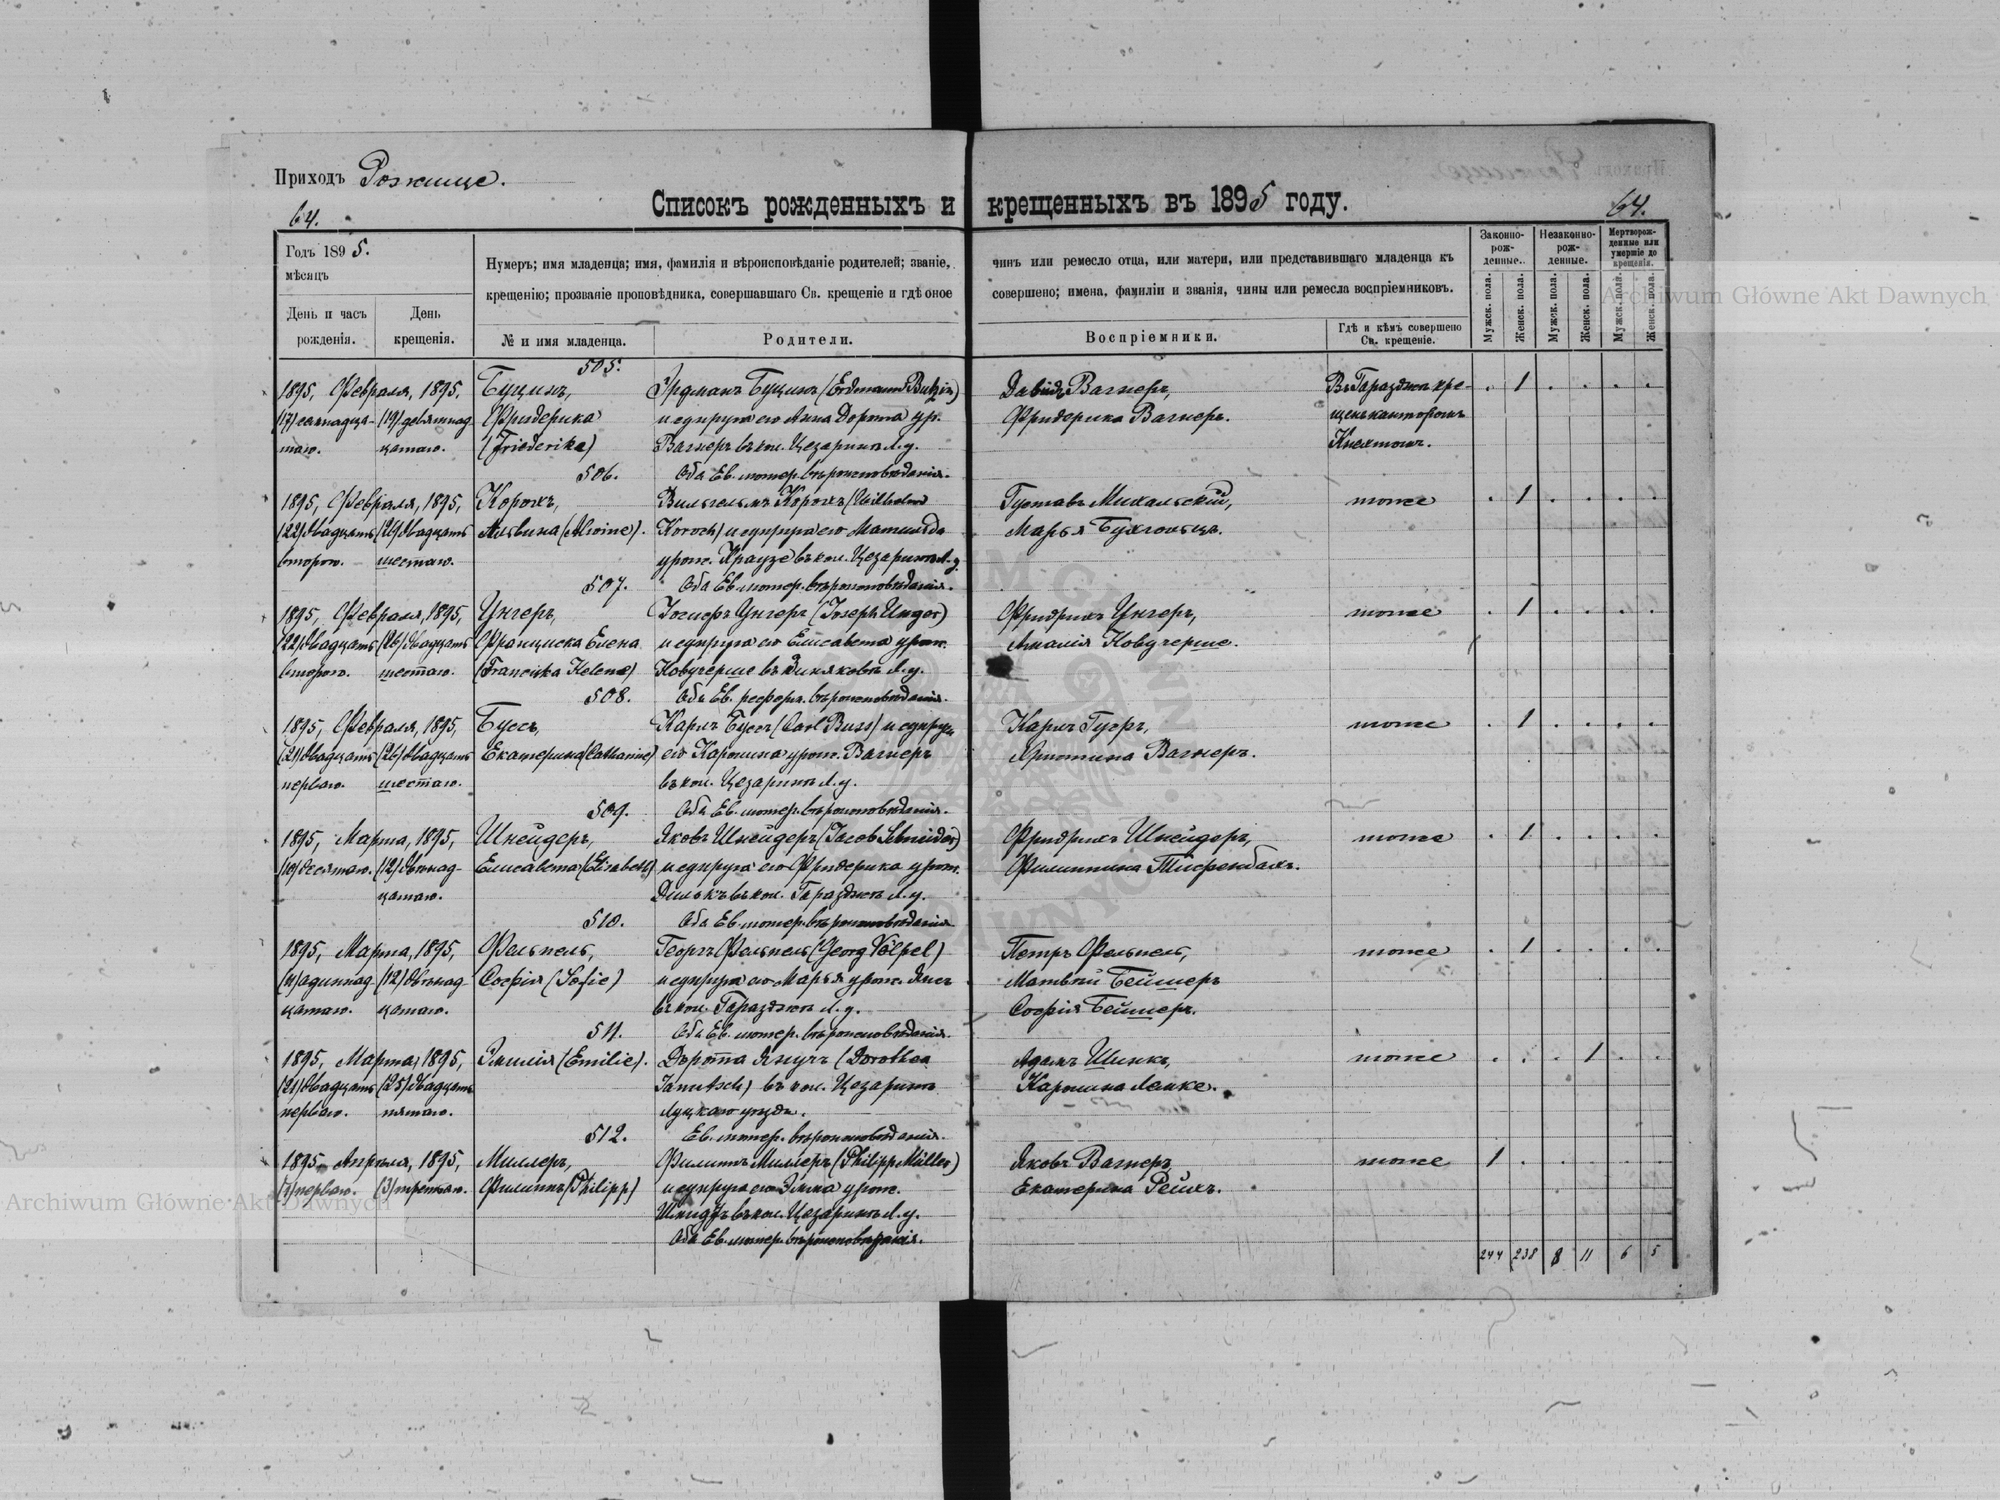 Приходъ Рожище.
64.
Списокъ рожденныхъ и крещенныхъ въ 1895 году.
64.
Годъ 1895.
мѣсяцъ
День и часъ рожденія.
День крещенія.
Нумеръ; имя младенца; имя, фамилія и вѣроисповѣданіе родителей; званіе, чинъ или ремесло отца, или матери, или представившаго младенца къ
крещенію; прозваніе проповѣдника, совершавшаго Св. крещеніе и гдѣ оное совершено; имена, фамиліи и званія, чины или ремесла воспріемниковъ.
№ и имя младенца.
Родители.
Воспріемники.
Гдѣ и кѣмъ совершено Св. крещеніе.
Законно-рож-денные.
Незаконно-рож-денные.
Мертворож-денные или умершіе до крещенія.
Мужск. пола.
Женск. пола.
Мужск. пола.
Женск. пола.
Мужск. пола.
Женск. пола.
505.
1895, Февраля, 1895,
(17) семнадца-
таго.
(19) девятнад
цатаго.
Буцинъ,
Фридерика
(Friederike)
Эрдманъ Буцинъ (Erdmann Butzin)
и супруга его Анна Дорота ур.
Вагнеръ въ кол. Цезаринъ Л. у.
Оба Ев. лютер. вѣроисповѣданія.
Давидъ Вагнеръ,
Фридерика Вагнеръ.
Въ Гараздже кре-
щенъ канторомъ
Кнехтомъ.
. 1 . . . .
506.
1895, Февраля, 1895,
(22) двадцать
второго.
(26) двадцать
шестаго.
Корохъ,
Альвина (Alwine).
Вильгельмъ Корохъ (Wilhelm
Koroch) и супруга его Матильда
урож. Краузе въ кол. Цезаринъ Л. у.
Оба Ев. лютер. вѣроисповѣданія.
Густавъ Михальскій,
Марья Бухгольцъ.
тоже
. 1 . . . .
507.
1895, Февраля, 1895,
(22) двадцать
второго.
(26) двадцать
шестаго.
Унгеръ,
Франциска Елена
(Franciska Helena)
Іосифъ Унгеръ (Joseph Unger)
и супруга его Елисавета урож.
въ Л. у.
Оба Ев. реформ. вѣроисповѣданія.
Фридрихъ Унгеръ,
Амалія
тоже
. 1 . . . .
508.
1895, Февраля, 1895,
(21) двадцать
перваго.
(26) двадцать
шестаго.
Буссъ,
Екатерина (Catharine)
Карлъ Буссъ (Carl Buss) и супруга
его Каролина урож. Вагнеръ
въ кол. Цезаринъ Л. у.
Оба Ев. лютер. вѣроисповѣданія.
Карлъ
Христина Вагнеръ.
тоже
. 1 . . . .
509.
1895, Марта, 1895,
(10) десятаго.
(12) двѣнад-
цатаго.
Шнейдеръ,
Елисавета (Elisabeth)
Яковъ Шнейдеръ (Jacob Schneider)
и супруга его Фридерика урож.
въ кол. Гараздже Л. у.
Оба Ев. лютер. вѣроисповѣданія
Фридрихъ Шнейдеръ,
Филиппина Тифенбахъ.
тоже
. 1 . . . .
510.
1895, Марта, 1895,
(11) одиннад
цатаго.
(12) двѣнад-
цатаго.
Фельпель,
Софія (Sofie)
Георгъ Фельпель (Georg Völpel)
и супруга его Марья урож.
въ кол. Гараздже Л. у.
Оба Ев. лютер. вѣроисповѣданія.
Петръ Фельпель,
Матвѣй Беймлеръ
Софія Беймлеръ.
тоже
. 1 . . . .
511.
1895, Марта, 1895,
(21) двадцать
перваго.
(25) двадцать
пятаго.
Эмилія (Emilie).
Доротта Янучъ (Dorothea
Janutsch) въ кол. Цезаринъ
Луцкаго уѣзда.
Ев. лютер. вѣроисповѣданія.
Адамъ Шинкъ,
Каролина Лемке.
тоже
. . . 1 . .
512.
1895, Апрѣля, 1895,
(1) перваго.
(3) третьяго.
Миллеръ,
Филиппъ (Philipp)
Филиппъ Миллеръ (Philipp Müller)
и супруга его Эмма урож.
Шмидтъ въ кол. Цезаринъ Л. у.
Оба Ев. лютер. вѣроисповѣданія.
Яковъ Вагнеръ,
Екатерина Рейхъ.
тоже
1 . . . . .
244 238 8 11 6 5
Archiwum Główne Akt Dawnych
Archiwum Główne Akt Dawnych